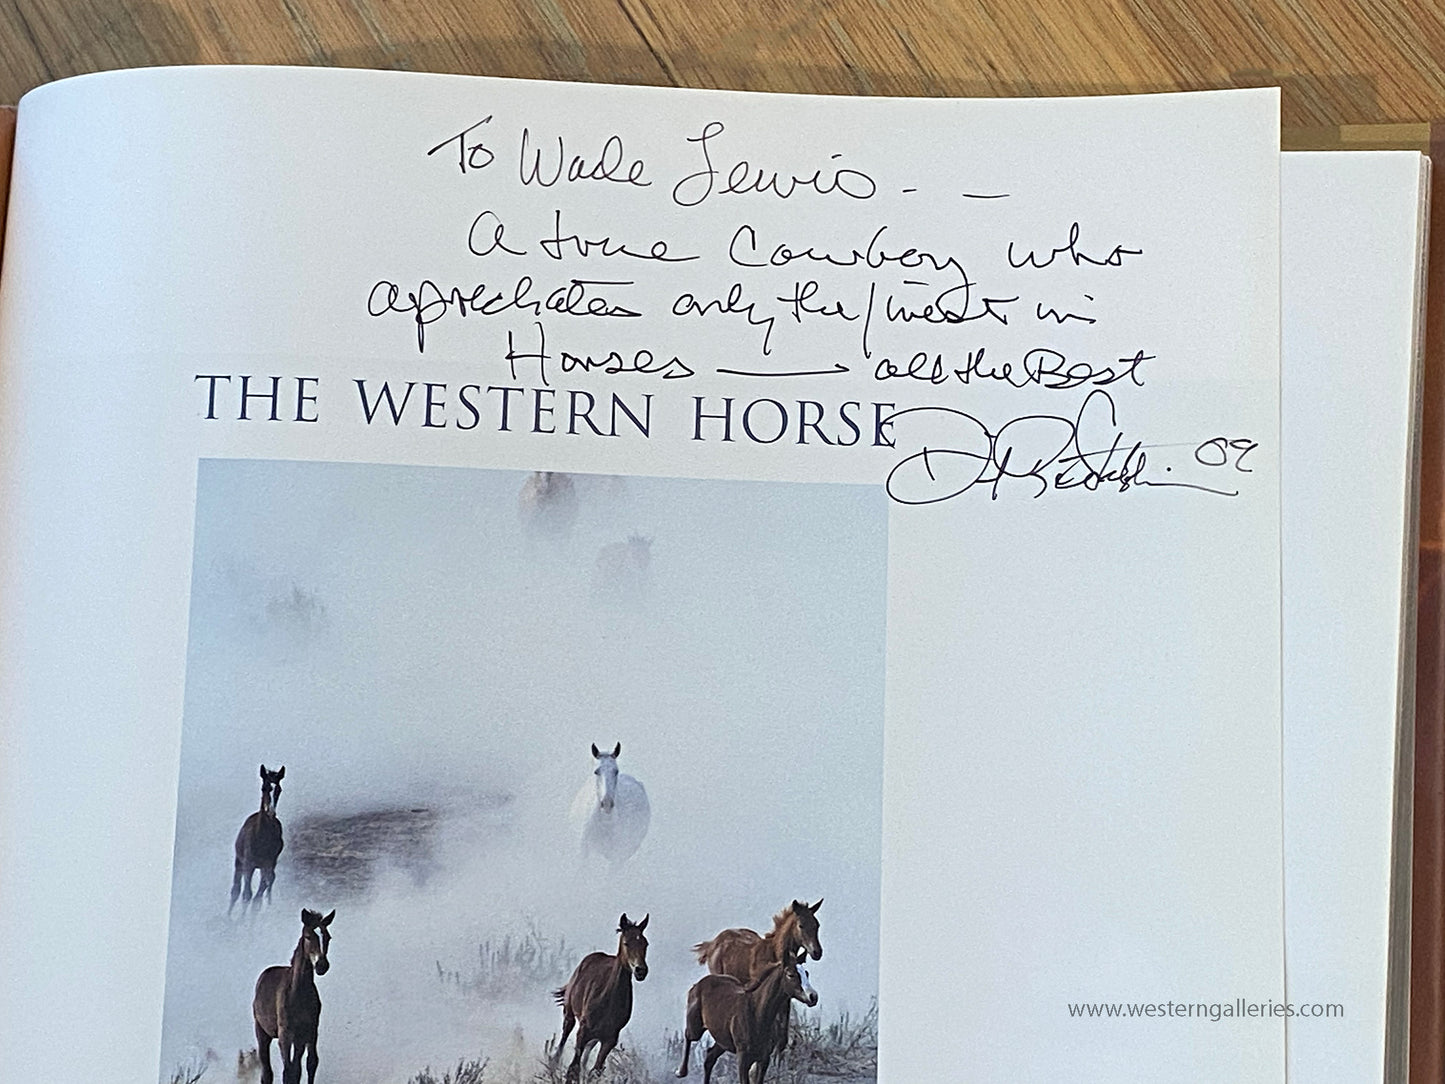 To Wade Lewis - -
A true Cowboy who
apreciates only the finest in
Horses — all the Best
THE WESTERN HORSE
09
www.westerngalleries.com